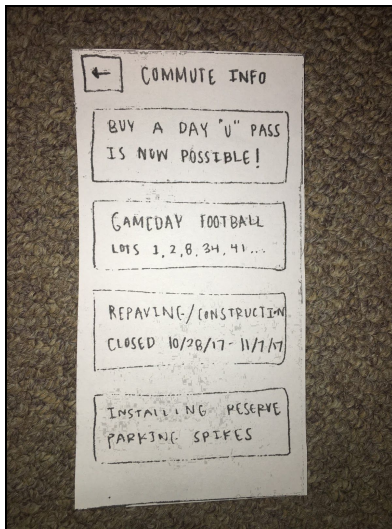 ← COMMUTE INFO
BUY A DAY "U" PASS
IS NOW POSSIBLE!
GAMEDAY FOOTBALL
LOTS 1, 2, 8, 34, 41...
REPAVING/CONSTRUCTION
CLOSED 10/28/17 - 11/7/17
INSTALLING RESERVE
PARKING SPIKES